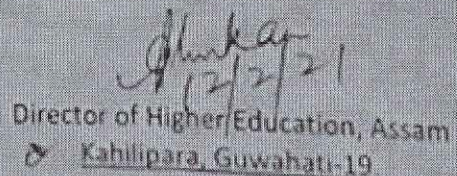 12/2/21
Director of Higher Education, Assam
Kahilipara, Guwahati-19